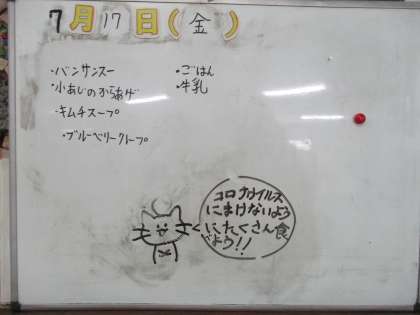 7月17日(金)
・バンサンスー
・小あじのからあげ
・キムチスープ
・ブルーベリークレープ
・ごはん
・牛乳
コロナウイルス
にまけないよう
にたくさん食
べよう!!